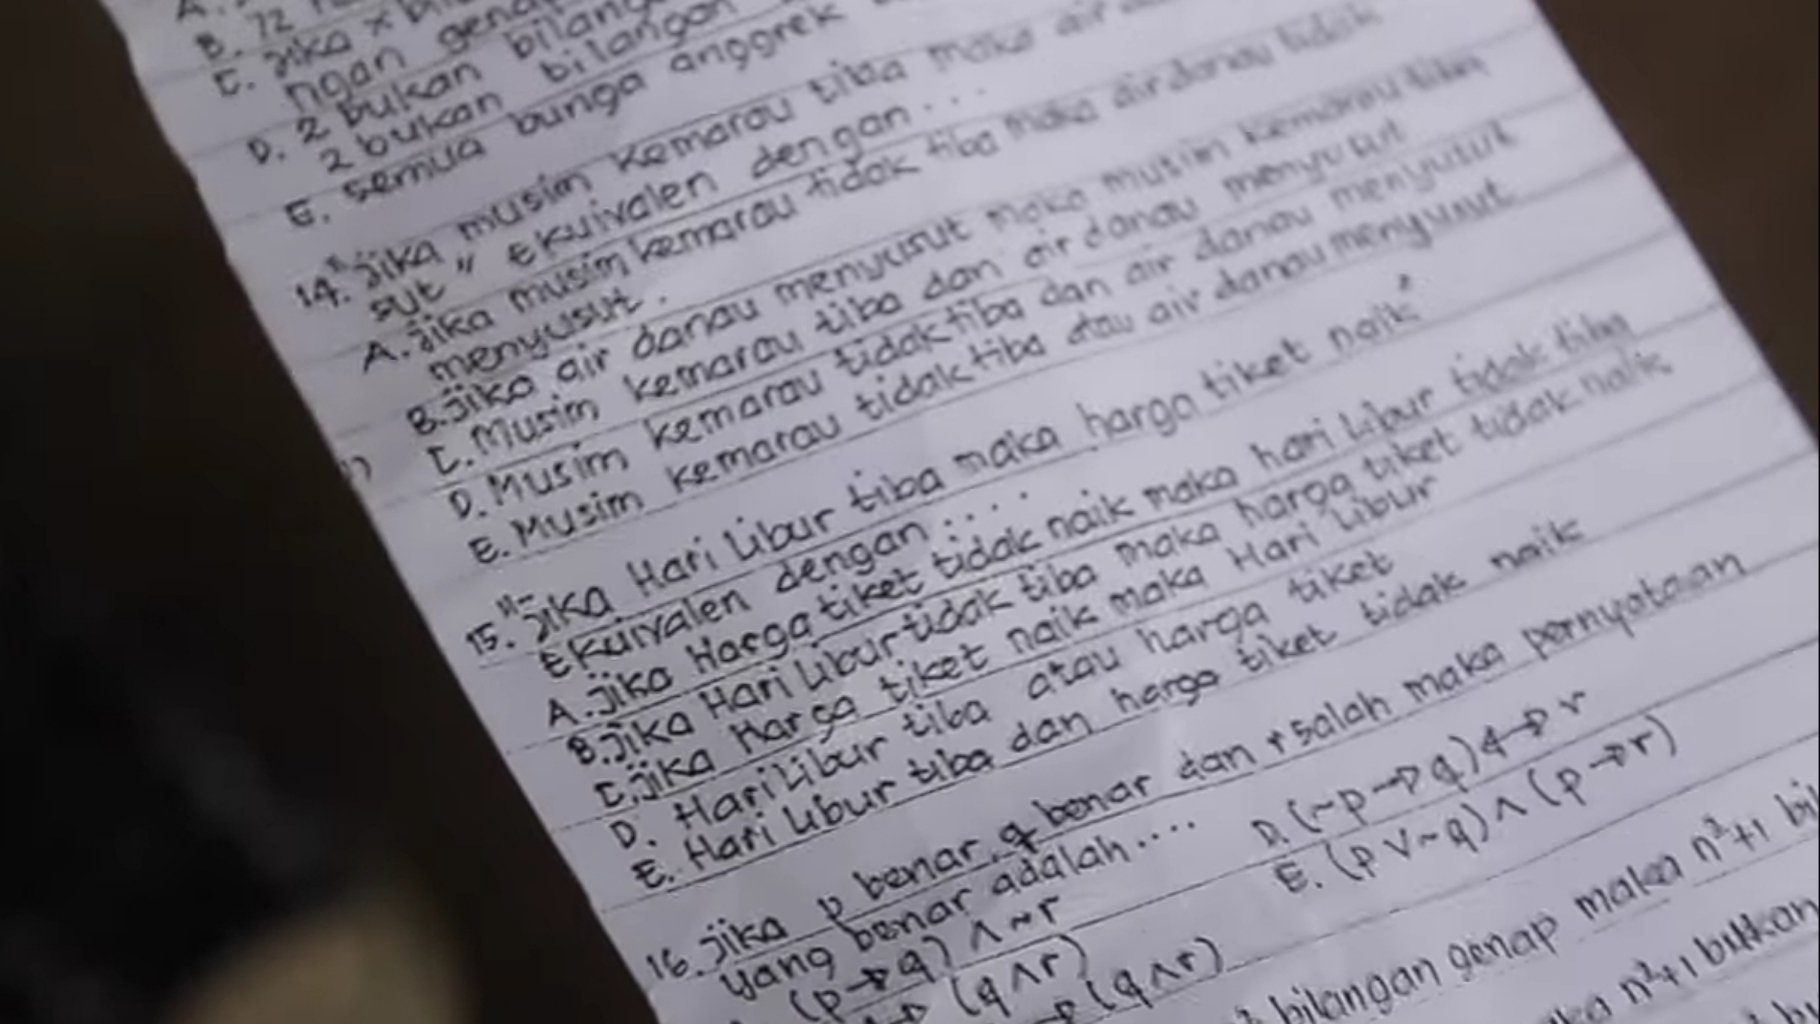 B. 12
C. Jika x
ngan genap
D. 2 bukan bilangan
2 bukan bilangan
E. semua bunga anggrek
14. "Jika musim kemarau tiba maka air
sut" Ekuivalen dengan....
A. Jika musim kemarau tidak tiba maka air danau tidak
menyusut.
B. Jika air danau menyusut maka musim kemarau tiba
C. Musim kemarau tiba dan air danau menyusut
D. Musim kemarau tidak tiba dan air danau menyusut
E. Musim kemarau tidak tiba atau air danau menyusut
15. "Jika Hari Libur tiba maka harga tiket naik"
Ekuivalen dengan.....
A. Jika Harga tiket tidak naik maka hari libur tidak tiba
B. Jika Hari Libur tidak tiba maka harga tiket tidak naik
C. Jika Harga tiket naik maka Hari Libur
D. Hari Libur tiba atau harga tiket
E. Hari Libur tiba dan harga tiket tidak naik
16. Jika p benar, q benar dan r salah maka pernyataan
yang benar adalah....
(p → q) ∧ ~r
D. (~p → q) ↔ r
→ (q ∧ r)
E. (p ∨ ~q) ∧ (p → r)
→ (q ∧ r)
bilangan genap maka n²+1
n²+1 bukan